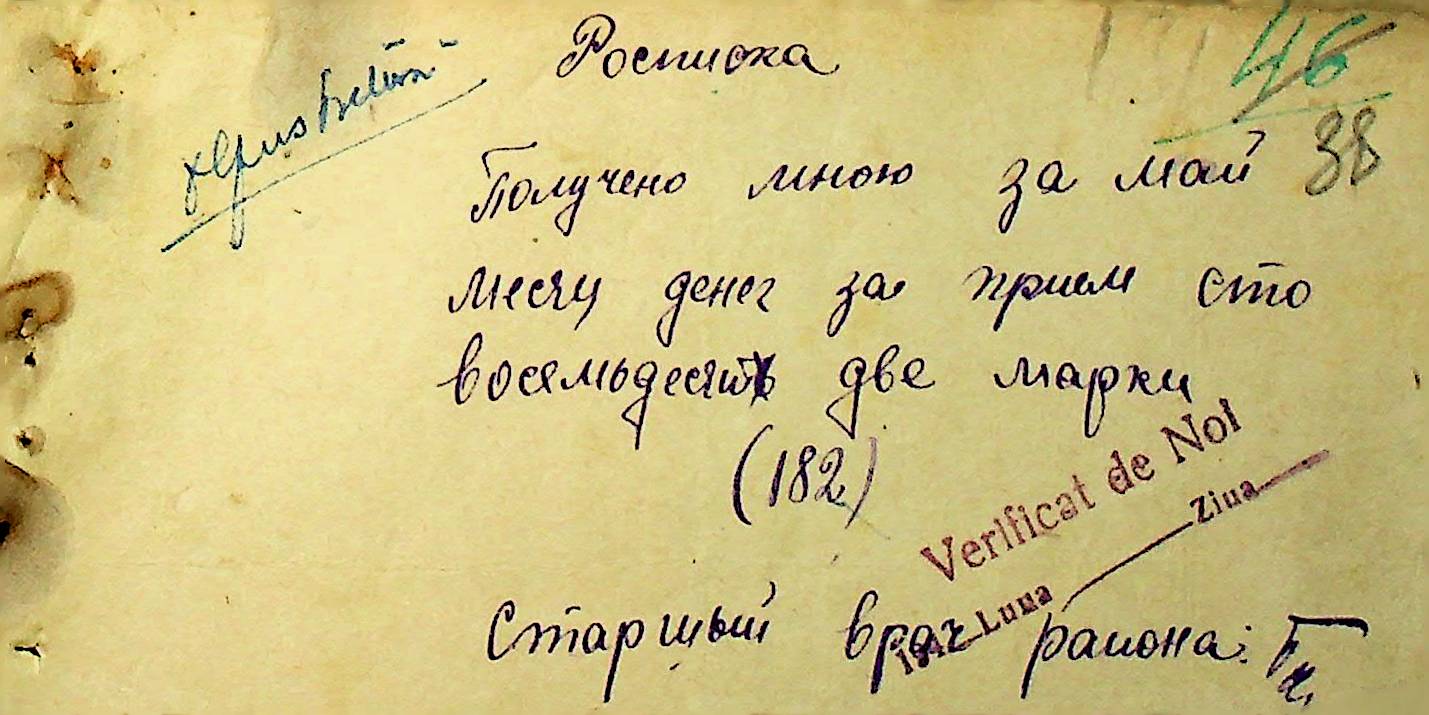 Росписка
46
38
Получено мною за май
месяц денег за прием сто
восемьдесять две марки
(182)
Verificat de Noi
1942 Luna Ziua
Старший врач района: